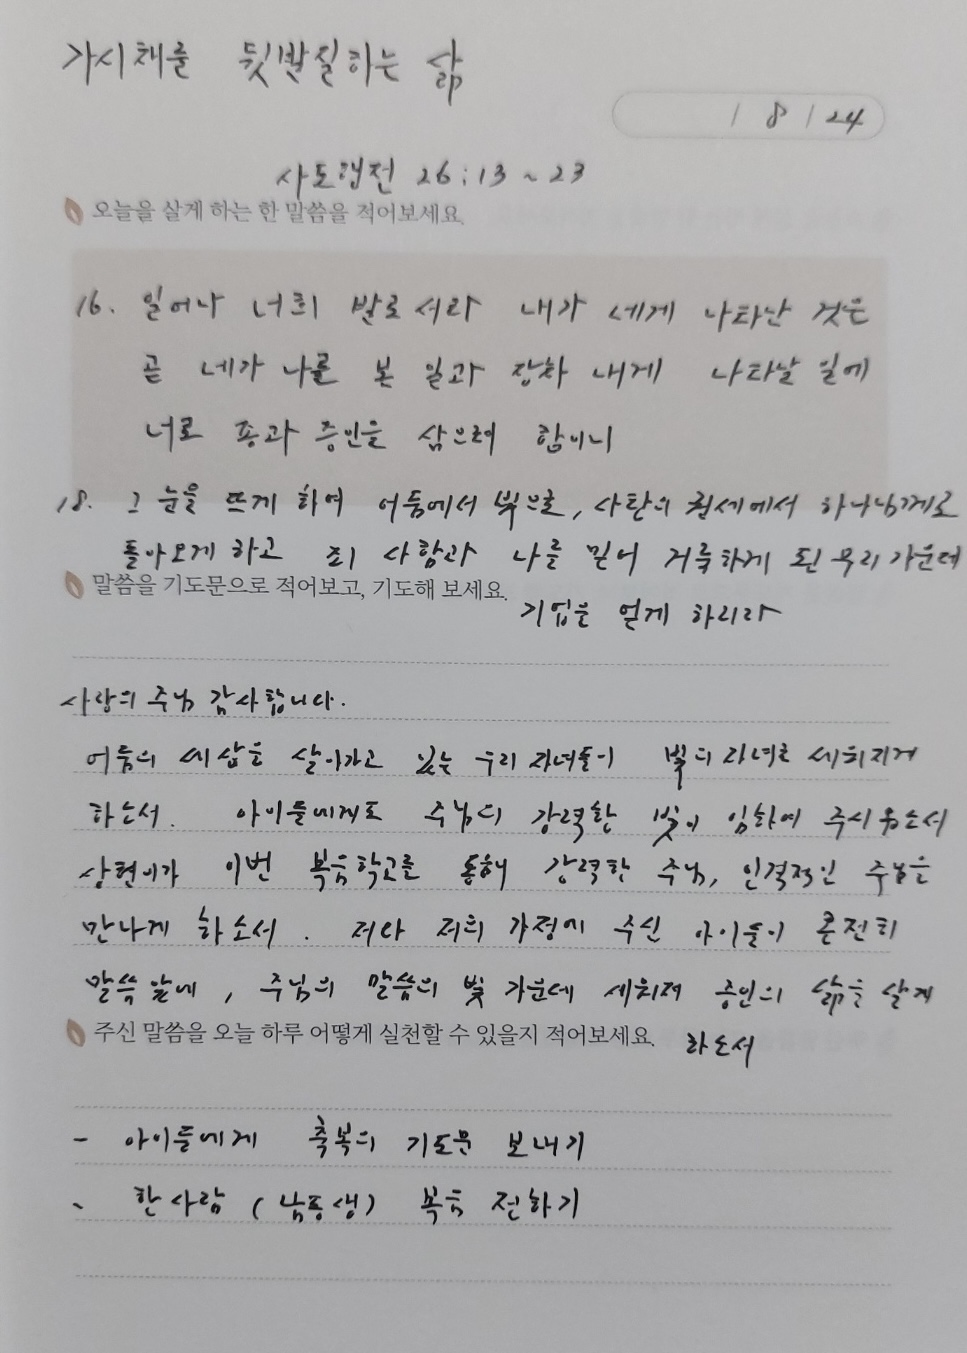 가시채를 뒷발질하는 삶
/ 8 / 24
사도행전 26:13~23
오늘을 살게 하는 한 말씀을 적어보세요.
16. 일어나 너희 발로 서라 내가 네게 나타난 것은
곧 네가 나를 본 일과 장차 내게 나타날 일에
너로 종과 증인을 삼으려 함이니
18. 그 눈을 뜨게 하여 어둠에서 빛으로, 사탄의 권세에서 하나님께로
돌아오게 하고 죄 사함과 나를 믿어 거룩하게 된 무리 가운데
기업을 얻게 하리라
말씀을 기도문으로 적어보고, 기도해 보세요.
사랑의 주님 감사합니다.
어둠의 세상을 살아가고 있는 우리 자녀들이 빛의 자녀로 세워지게
하소서. 아이들에게도 주님의 강력한 빛이 임하여 주시옵소서
상현이가 이번 복음학교를 통해 강력한 주님, 인격적인 주님을
만나게 하소서. 저와 저희 가정에 주신 아이들이 온전히
말씀 앞에, 주님의 말씀의 빛 가운데 세워져 증인의 삶을 살게
하소서
주신 말씀을 오늘 하루 어떻게 실천할 수 있을지 적어보세요.
- 아이들에게 축복의 기도문 보내기
- 한 사람 (남동생) 복음 전하기